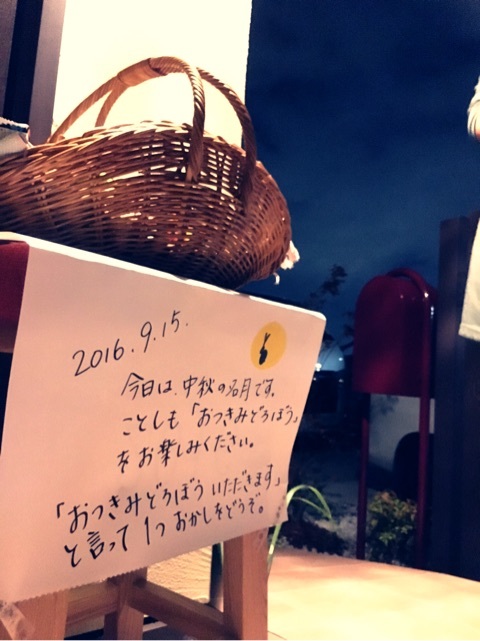 2016.9.15.
今日は、中秋の名月です。
ことしも「おつきみどろぼう」
をお楽しみください。
「おつきみどろぼう いただきます」
と言って1つ おかしをどうぞ。